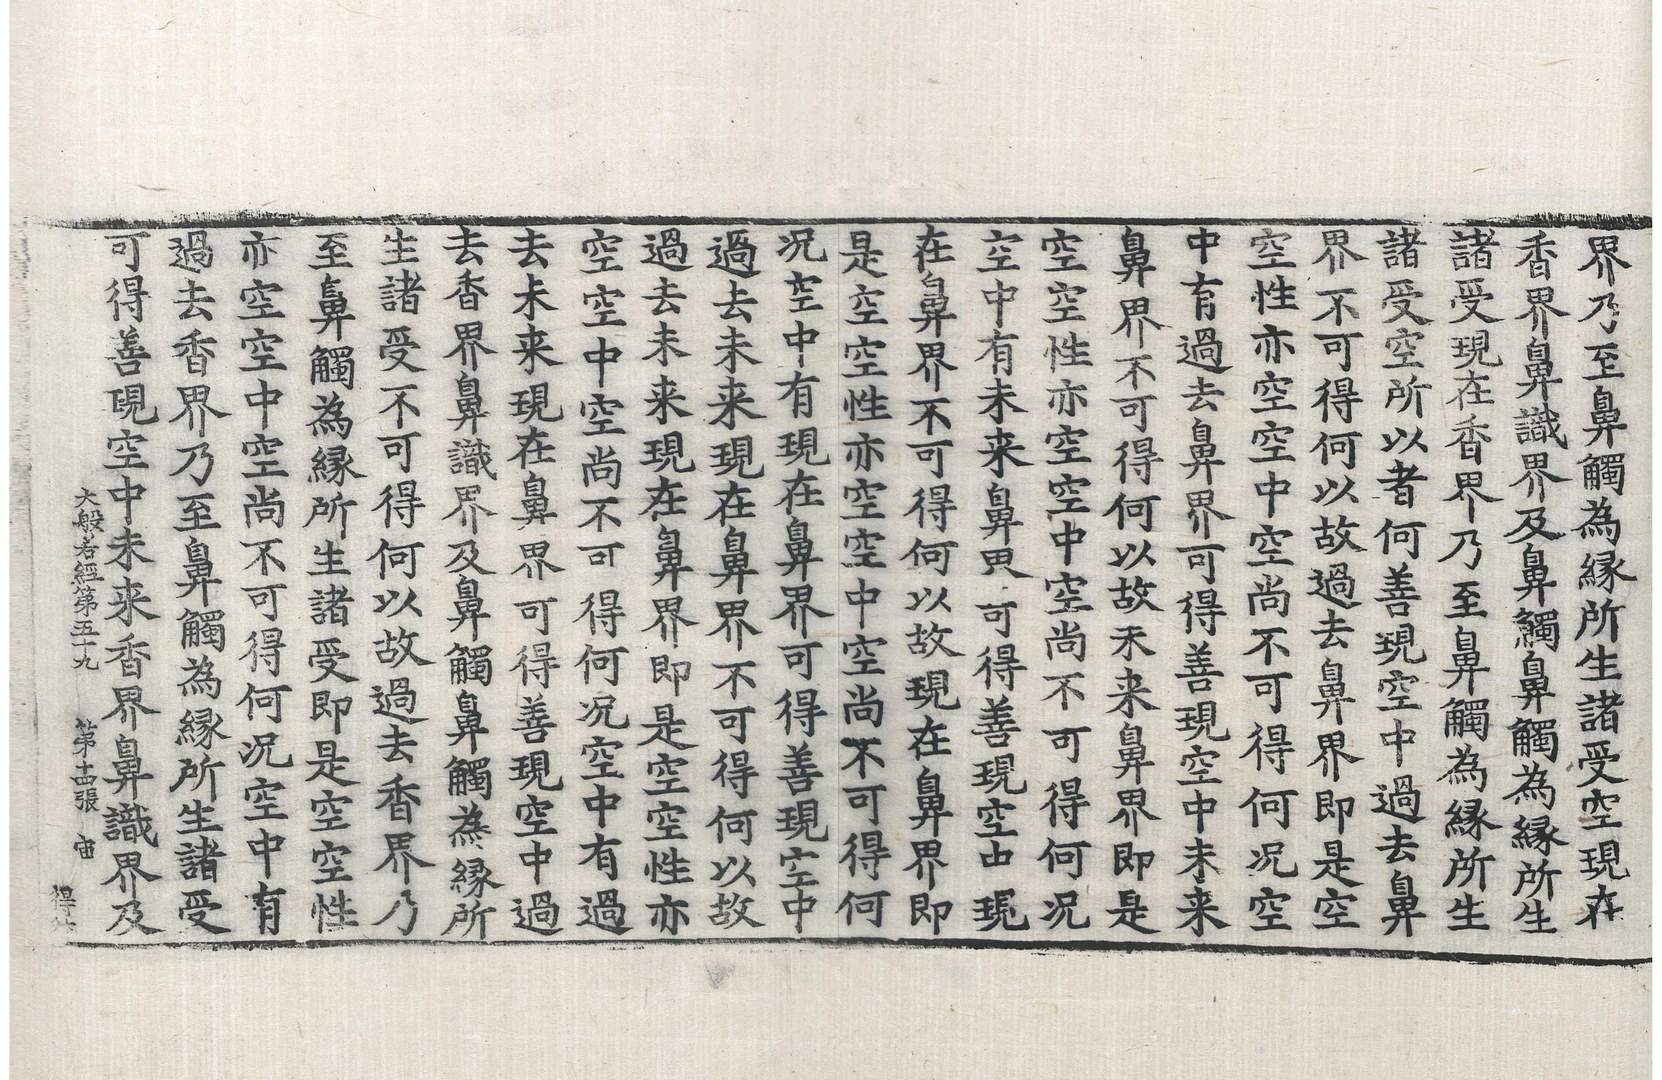 界乃至鼻觸為縁所生諸受空現在
香界鼻識界及鼻觸鼻觸為縁所生
諸受現在香界乃至鼻觸為縁所生
諸受空所以者何善現空中過去鼻
界不可得何以故過去鼻界即是空
空性亦空空中空尚不可得何况空
中有過去鼻界可得善現空中未来
鼻界不可得何以故未来鼻界即是
空空性亦空空中空尚不可得何况
空中有未来鼻界可得善現空中現
在鼻界不可得何以故現在鼻界即
是空空性亦空空中空尚不可得何
况空中有現在鼻界可得善現空中
過去未来現在鼻界不可得何以故
過去未来現在鼻界即是空空性亦
空空中空尚不可得何况空中有過
去未来現在鼻界可得善現空中過
去香界鼻識界及鼻觸鼻觸為縁所
生諸受不可得何以故過去香界乃
至鼻觸為縁所生諸受即是空空性
亦空空中空尚不可得何况空中有
過去香界乃至鼻觸為縁所生諸受
可得善現空中未来香界鼻識界及
大般若經第五十九 第十四張 宙
得